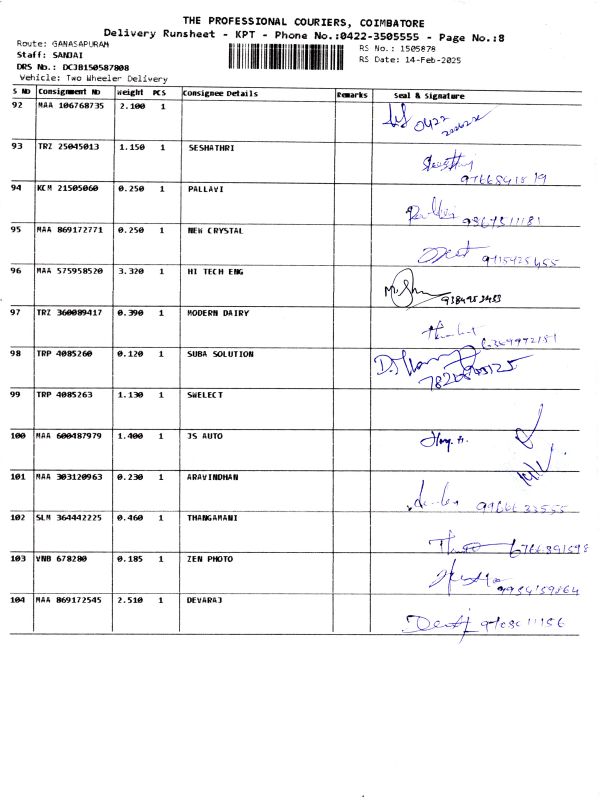 THE PROFESSIONAL COURIERS, COIMBATORE
Delivery Runsheet - KPT - Phone No.:0422-3505555 - Page No.:8
Route: GANASAPURAM
Staff: SANJAI
DRS No.: DCJB150587808
Vehicle: Two Wheeler Delivery
RS No.: 1505878
RS Date: 14-Feb-2025
S No Consignment No Weight PCS Consignee Details Remarks Seal & Signature
92 MAA 106768735 2.100 1 0422
93 TRZ 25045013 1.150 1 SESHATHRI
94 KCM 21505060 0.250 1 PALLAVI
95 MAA 869172771 0.250 1 NEW CRYSTAL
96 MAA 575958520 3.320 1 HI TECH ENG
97 TRZ 360089417 0.390 1 MODERN DAIRY
98 TRP 4085260 0.120 1 SUBA SOLUTION
99 TRP 4085263 1.130 1 SWELECT
100 MAA 600487979 1.400 1 JS AUTO
101 MAA 303120963 0.230 1 ARAVINDHAN
102 SLM 364442225 0.460 1 THANGAMANI
103 VNB 678280 0.185 1 ZEN PHOTO
104 MAA 869172545 2.510 1 DEVARAJ